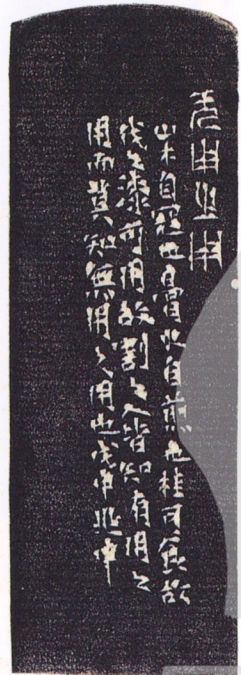 无用之用
山木自寇也膏火自煎也桂可食故
伐之漆可用故割之人皆知有用之
用而莫知無用之用也